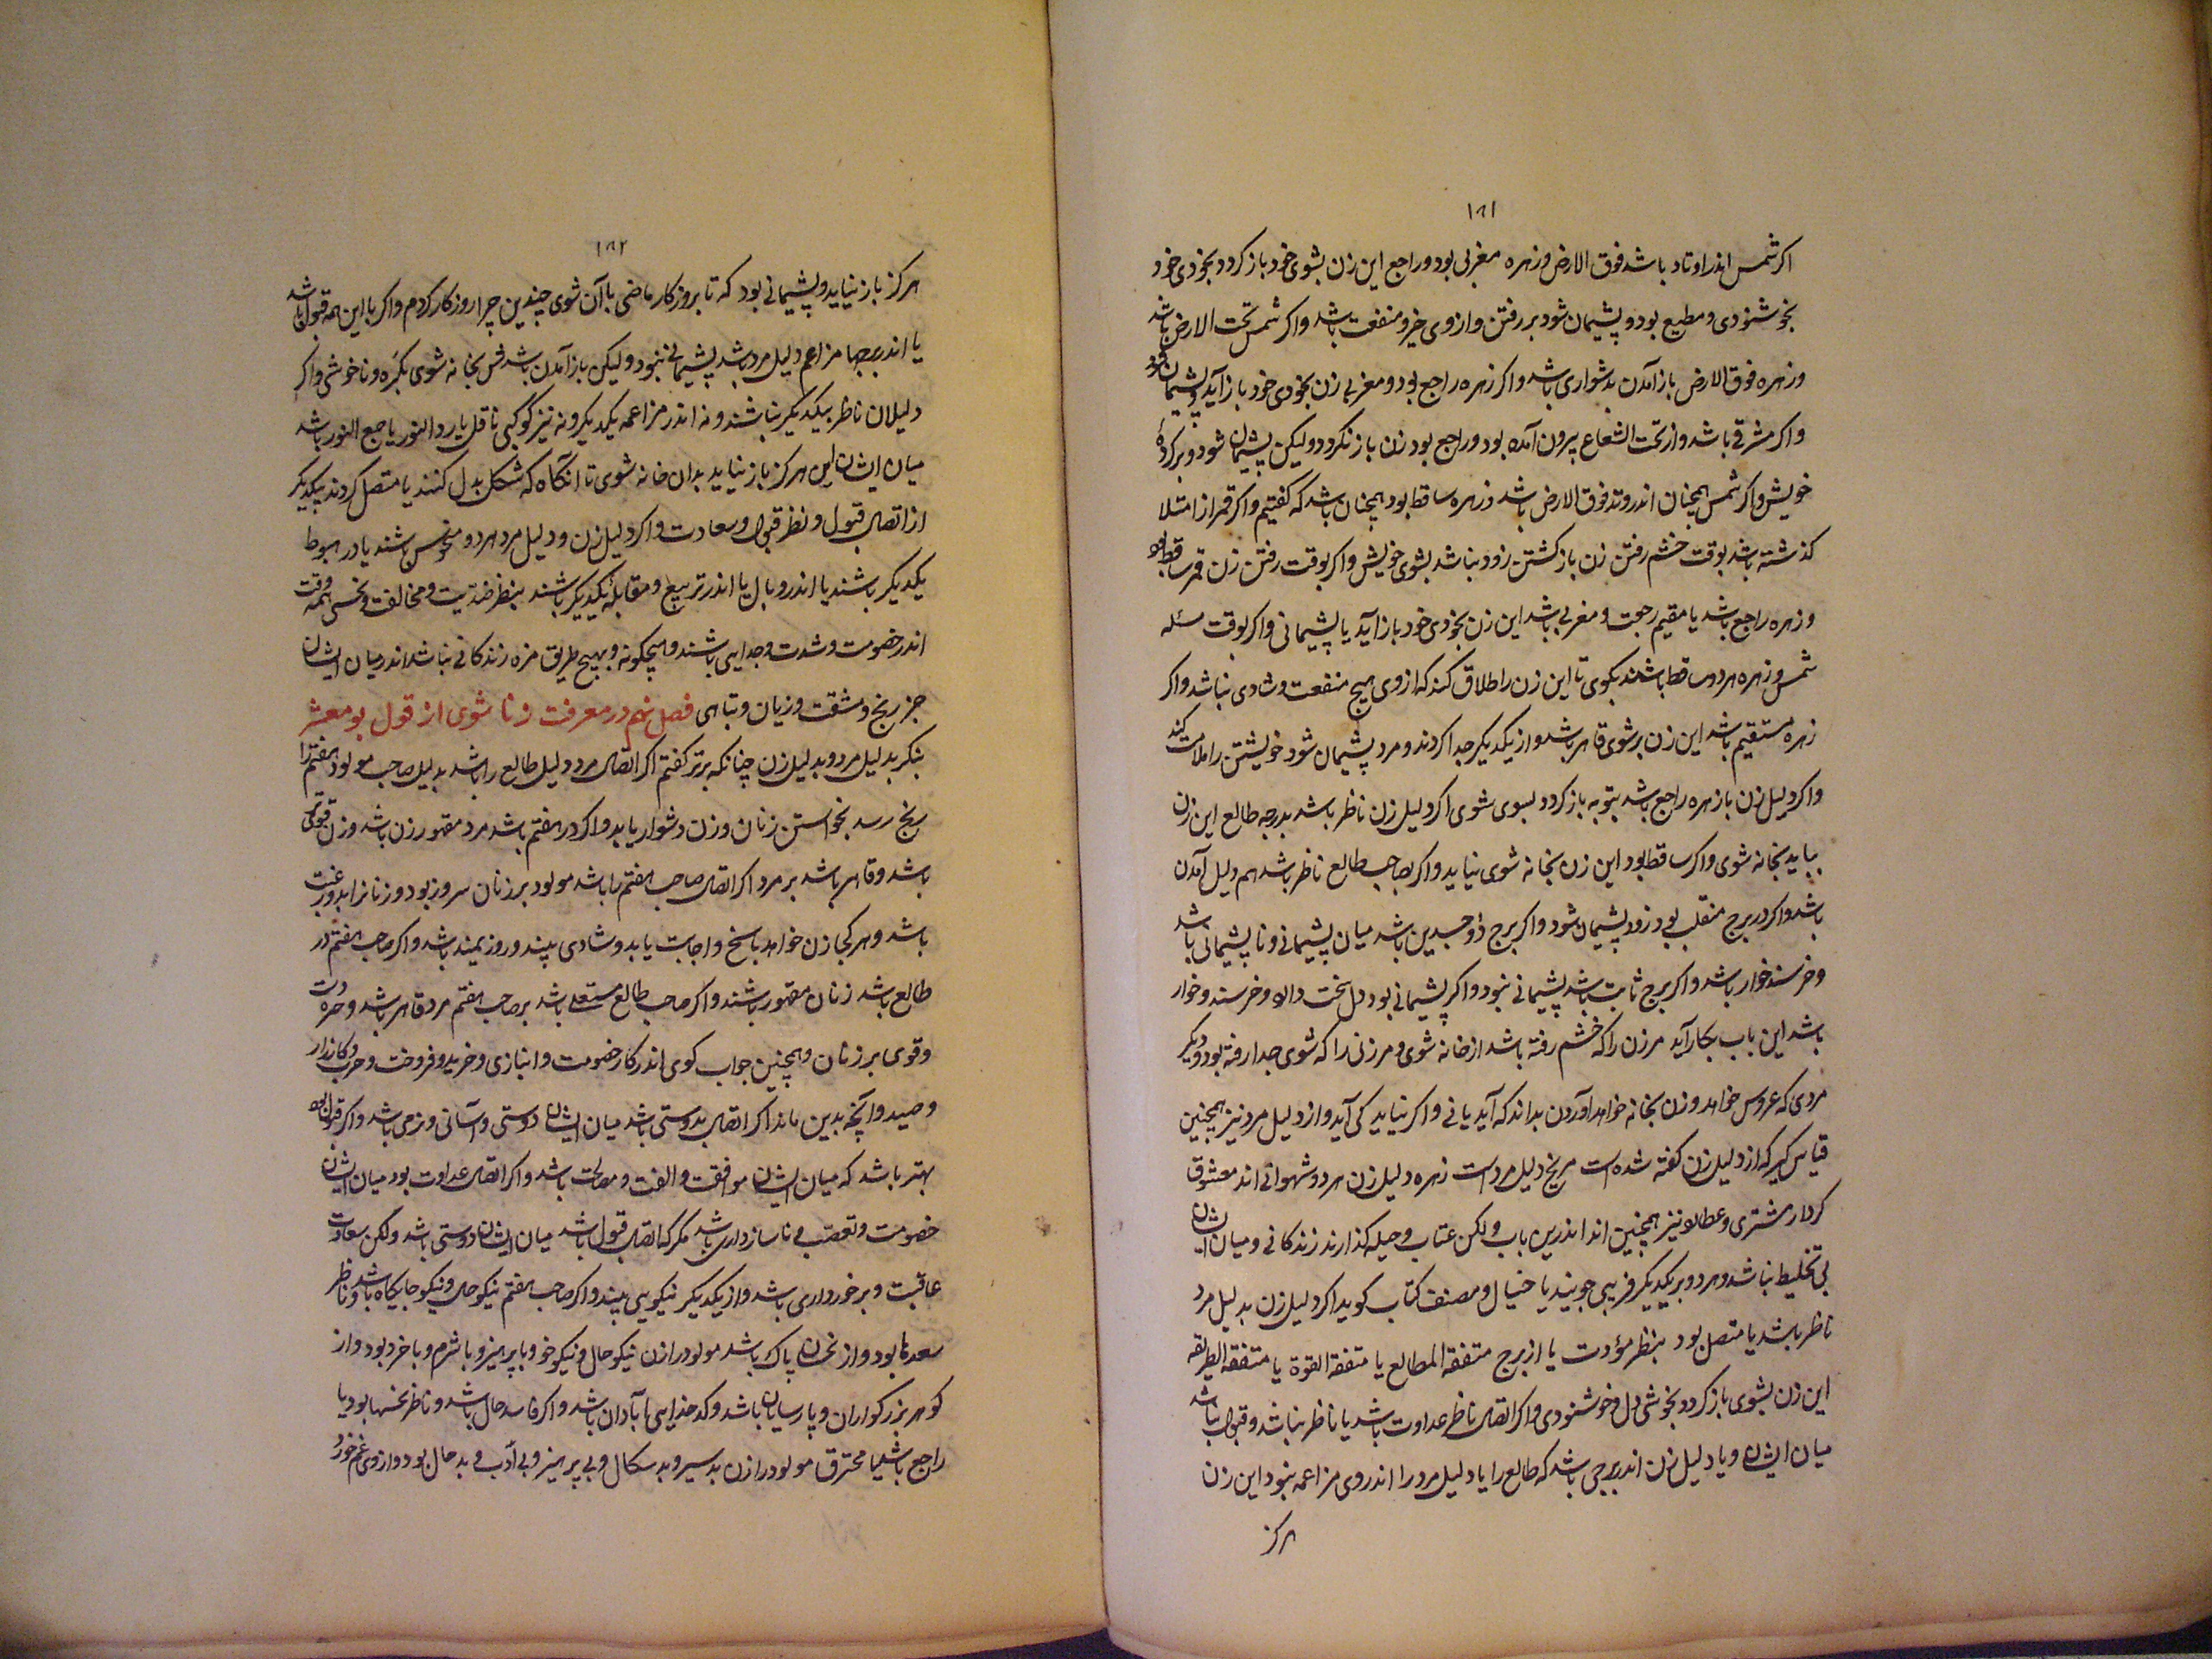 ۱۸۱
اکر شمس اندر اوتاد باشد فوق الارض و زهره مغربی بود و راجع این زن بشوی خود باز کردد بخودی خود
بخوشنودی و مطیع بود و پشیمان شود بر رفتن و از وی خیر و منفعت باشد و اکر شمس تحت الارض باشد
و زهره فوق الارض باز آمدن بدشواری باشد و اکر زهره راجع بود و مغربی زن بخودی خود باز آید و پشیمان شود
و اکر مشرقی باشد و از تحت الشعاع بیرون آمده بود و راجع بود زن باز نکردد ولیکن پشیمان شود و بر کردهٔ
خویش و اکر شمس همچنان اندر وتد فوق الارض باشد و زهره ساقط بود همچنان باشد که کفتیم و اکر قمر از امتلا
کذشته باشد بوقت خشم رفتن زن باز کشتن زود نباشد بشوی خویش و اکر بوقت رفتن زن قمر ساقط بود
و زهره راجع باشد یا مقیم رجعت و مغربی باشد این زن بخودی خود باز آید با پشیمانی و اکر بوقت مسئله
شمس و زهره هر دو ساقط باشند بکوی تا این زن را طلاق کند که از وی هیچ منفعت و شادی نباشد و اکر
زهره مستقیم باشد این زن بر شوی قاهر باشد و از یکدیکر جدا کردند و مرد پشیمان شود خویشتن را ملامت کند
و اکر دلیل زن با زهره راجع باشد بتوبه باز کردد بسوی شوی اکر دلیل زن ناظر باشد بدرجه طالع این زن
بیاید بخانه شوی و اکر ساقط بود این زن بخانه شوی نیاید و اکر بصاحب طالع ناظر باشد هم دلیل آمدن
باشد و اکر در برج منقلب بود زود پشیمان شود و اکر برج ذو جسدین باشد میان پشیمانی و ناپشیمانی باشد
و خرسند خوار باشد و اکر برج ثابت باشد پشیمانی نبود و اکر پشیمانی بود دل سخت دارد و خرسند و خوار
باشد این باب بکار آید مر زن را که خشم رفته باشد از خانه شوی و مر زنی را که شوی جدا رفته بود و دیکر
مردی که عروس خواهد و زن بخانه خواهد آوردن بداند که آید یا نی و اکر نیاید کی آید و از دلیل مرد نیز همچنین
قیاس کیر که از دلیل زن کفته شده است مریخ دلیل مردست زهره دلیل زن هر دو شهوانی اند معشوق
کردار مشتری و عطارد نیز همچنین اند اندرین باب ولکن عتاب و حیله کذارند زندکانی و میان ایشان
بی تخلیط نباشد و هر دو بر یکدیکر فریبی جویند یا خیال و مصنف کتاب کوید اکر دلیل زن بدلیل مرد
ناظر باشد یا متصل بود بنظر مؤدت یا از برج متفقة المطالع یا متفقة القوة یا متفقه الطریقه
این زن بشوی باز کردد بخوشی دل و خوشنودی و اکر اتصال ناظر عداوت باشد یا ناظر نباشد و قبول نباشد
میان ایشان و یا دلیل زن اندر برجی باشد که طالع را یا دلیل مرد را اندر وی مزاعمه نبود این زن
هرکز
۱۸۲
هرکز باز نیاید و پشیمانی بود که تا بروزکار ماضی با آن شوی چندین چرا روزکار کردم و اکر با این همه قبول باشد
یا اندر برجها مزاعم دلیل مرد باشد پشیمانی نبود ولیکن باز آمدن باشدش بخانه شوی بکره و ناخوشی و اکر
دلیلان ناظر بیکدیکر نباشند و نه اندر مزاعمه یکدیکر و نه نیز کوکبی ناقل یا رد النور یا جمع النور باشد
میان ایشان این هرکز باز نیاید بدان خانه شوی تا انکاه که شکل بدل کنند یا متصل کردند بیکدیکر
از اتصال قبول و نظر قبول و سعادت و اکر دلیل زن و دلیل مرد هر دو منحوس باشند یا در هبوط
یکدیکر باشند یا اندر وبال یا اندر تربیع و مقابله یکدیکر باشند بنظر ضدیت و مخالفت و نحس همه وقت
اندر خصومت و شدت و جدایی باشند و هیچکونه و بهیچ طریق مزه زندکانی نباشد اندر میان ایشان
جز رنج و مشقت و زیان و تباهی فصل نهم در معرفت زناشوی از قول بومعشر
بنکر بدلیل مرد و بدلیل زن چنانکه برتر کفتم اکر اتصال مر دلیل طالع را باشد بدلیل صاحب مولود هفتم را
رنج رسد بخواستن زنان و زن دشوار یابد و اکر در هفتم باشد مرد مقهور زن باشد و زن قوی تر
باشد و قاهر باشد بر مرد اکر اتصال صاحب هفتم را باشد مولود بر زنان سرور بود و زنانرا بدو رغبت
باشد و هر کجا زن خواهد پاسخ و اجابت یابد و شادی بیند و روزیمند باشد و اکر صاحب هفتم در
طالع باشد زنان مقهور باشند و اکر صاحب طالع مستعلی باشد بر صاحب هفتم مرد قاهر باشد و
و قوی بر زنان و همچنین جواب کوی اندر کار خصومت و انبازی و خرید و فروخت و حرب و کارزار
و صید و آنچه بدین ماند اکر اتصال بدوستی باشد میان ایشان دوستی و آسانی و نرمی باشد و اکر قبول بود
بهتر باشد که میان ایشان موافقت و الفت و مصالحت باشد و اکر اتصال عداوت بود میان ایشان
خصومت و تعصب و ناسازداری باشد مکر که اتصال قبول باشد میان ایشان دوستی باشد ولکن سعادت
عاقبت و برخورداری باشد و از یکدیکر نیکویی بیند و اکر صاحب هفتم نیکو حال و نیکو جایکاه باشد و ناظر
سعدها بود و از نحسان پاک باشد مولود را زن نیکو حال و نیکوخو و با پرهیز و با شرم و با خرد بود و از
کوهر بزرکواران و پارسایان باشد و کدخدایی آبادان باشد و اکر فاسد حال باشد و ناظر نحسها بود یا
راجع باشد یا محترق مولود را زن بد سیر و بد سکال و بی پرهیز و بی ادب و بد حال بود و از وی غم خورد